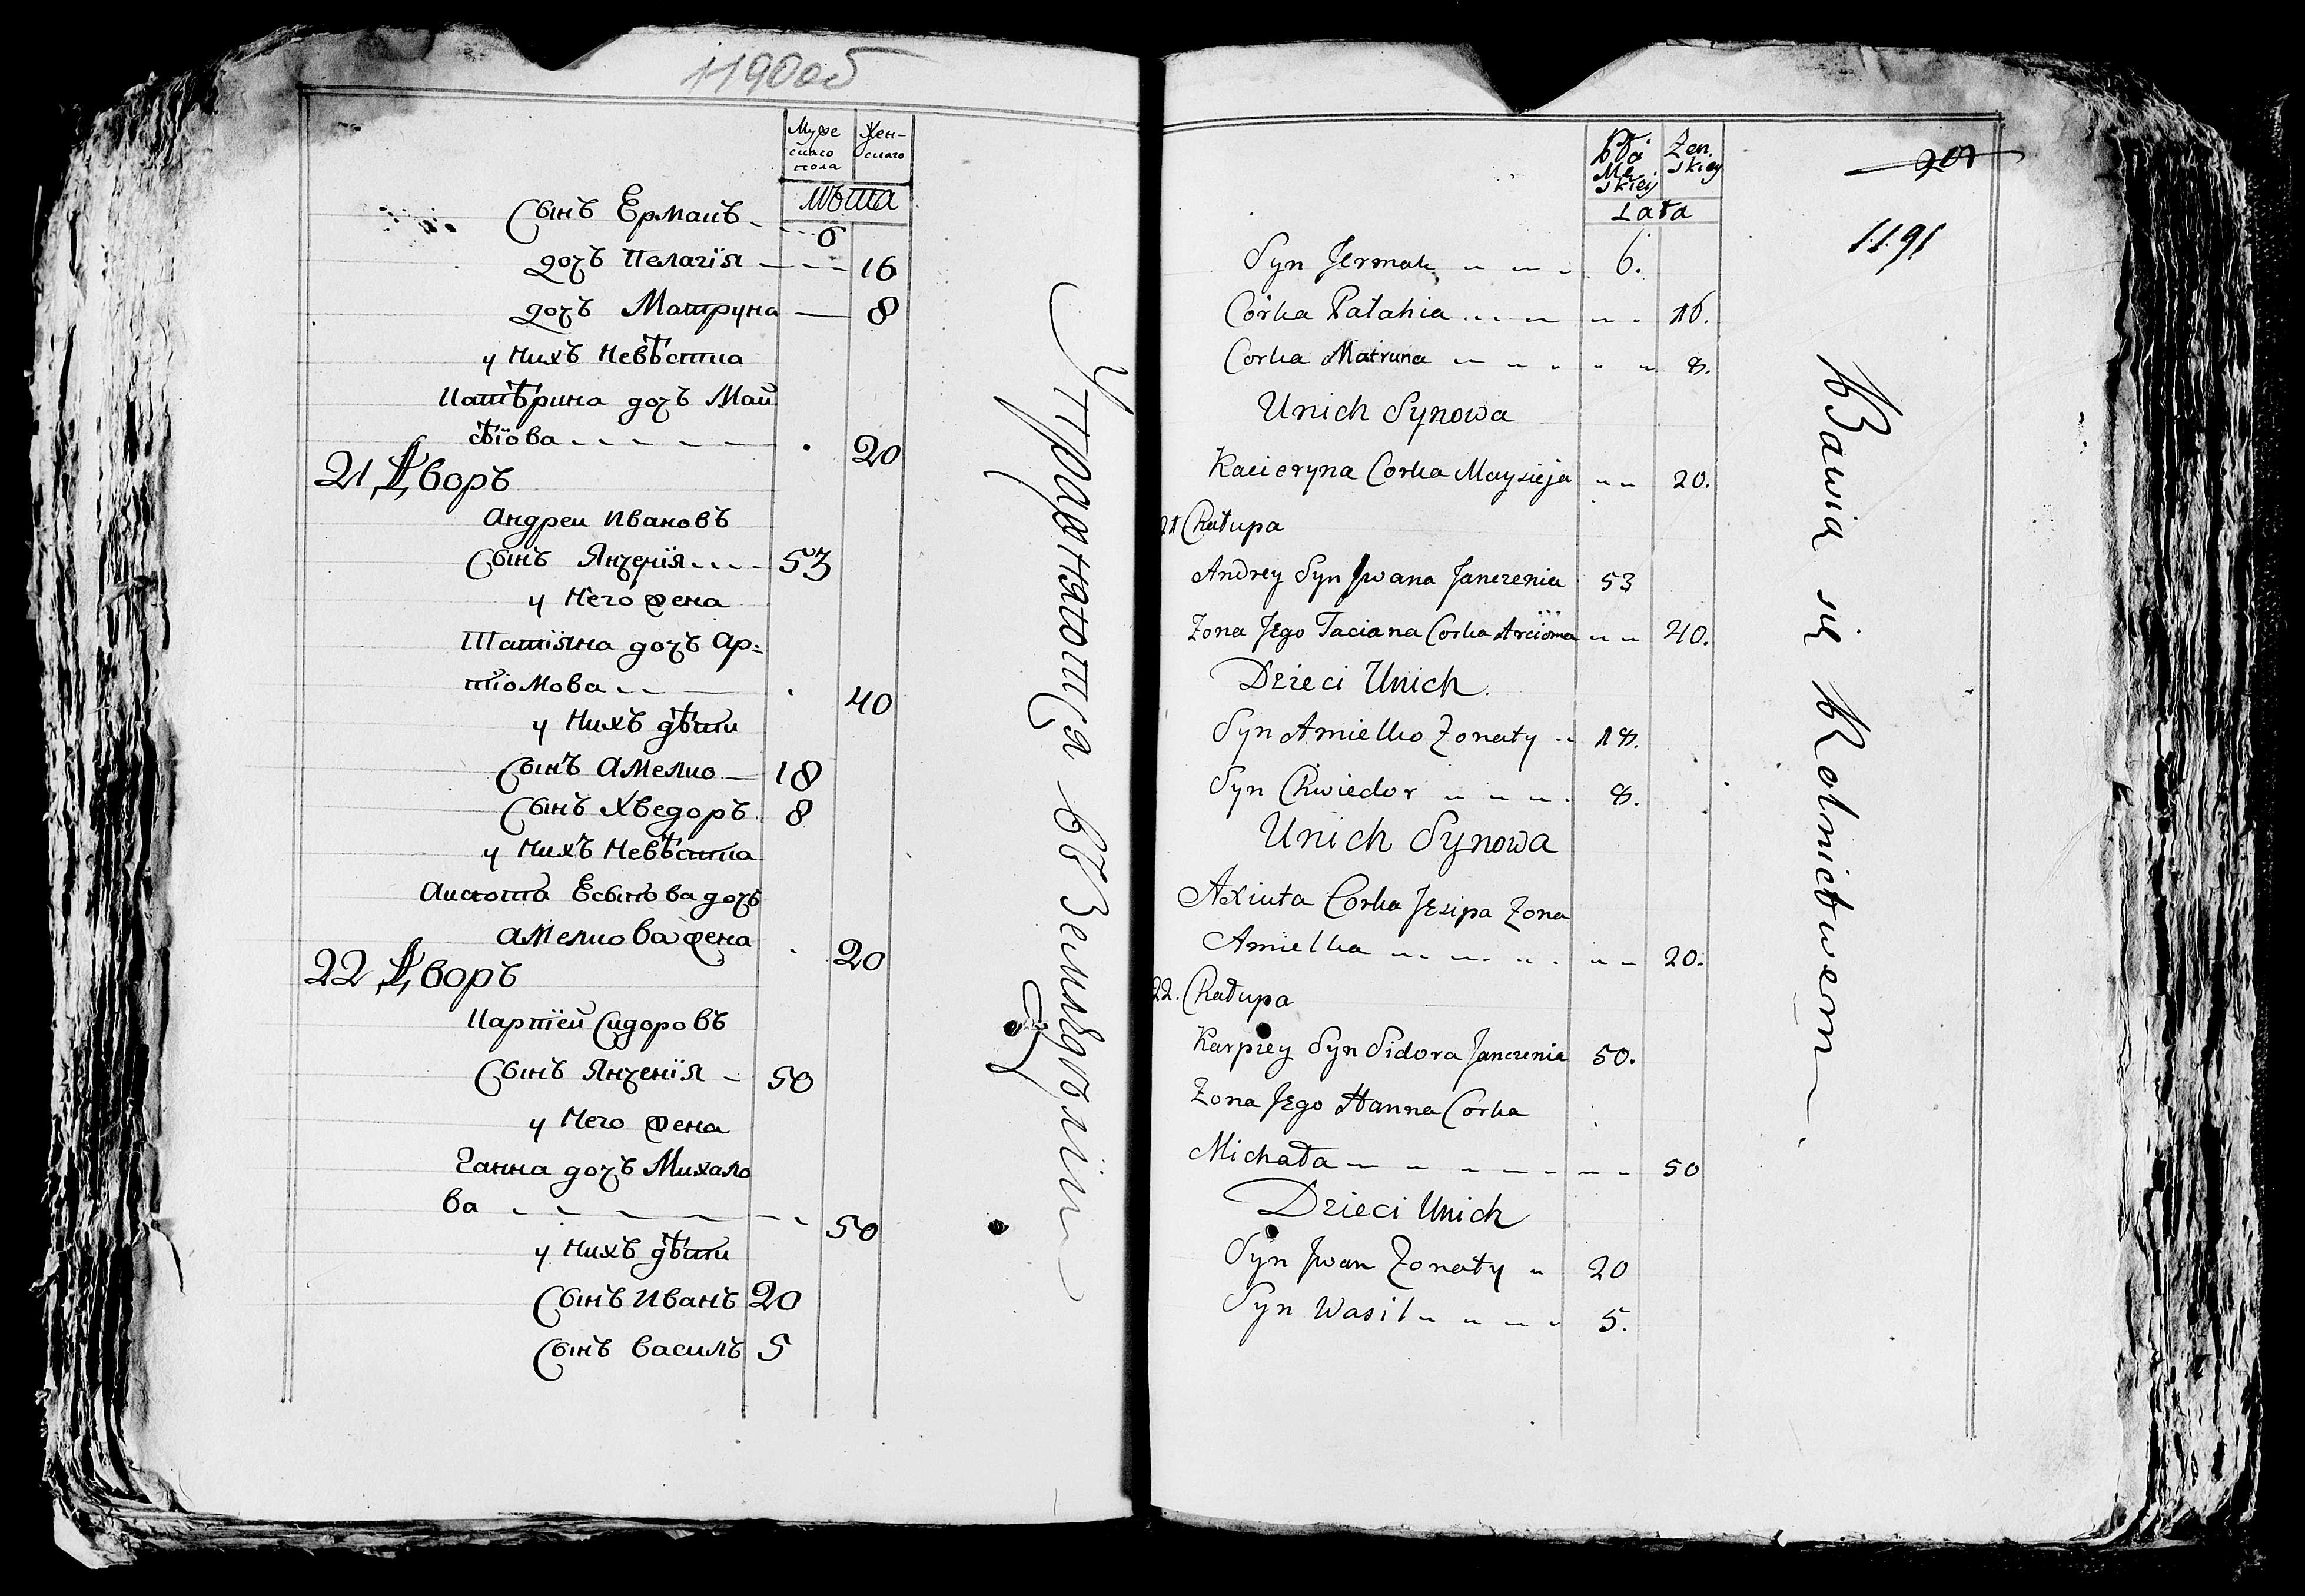 1190об
Муже
скаго
пола
Жен-
скаго
лѣта
Сынъ Ермакъ - - - 6
дочъ Пелагія - - - 16
дочъ Матруна — 8
у нихъ невѣста
Катѣрина дочъ Май
сѣіова - - - - - 20
21 Дворъ
Андрей Ивановъ
Сынъ Янченія - - - 53
у него жена
Татіяна дочъ Ар=
тіомова - - - 40
у нихъ дѣти
Сынъ Амелко — 18
Сынъ Хведоръ 8
у нихъ невѣста
Аксюта Есыпова дочъ
Амелкова жена 20
22 Дворъ
Карпіей Сидоровъ
Сынъ Янченія - 50
у него жена
Ганна дочъ Михало
ва - - - - - - - 50
у нихъ дѣти
Сынъ Иванъ 20
Сынъ Василъ 5
Упражняются въ Земледѣліи
Płci
Mę
skiey
Żen.
skiey
Lata
201
1191
Syn Jermak 6.
Córka Pałahia 16.
Corka Matruna 8.
Unich Synowa
Kacieryna Corka Maysieja 20.
21 Chałupa
Andrey Syn Jwana Janczenia 53
Zona Jego Taciana Corka Arcioma 40.
Dzieci Unich
Syn Amielko Zonaty 18.
Syn Chwiedor 8.
Unich Synowa
Axiuta Corka Jesipa Zona
Amielka 20.
22. Chałupa
Karpiey Syn Sidora Janczenia 50.
Zona Jego Hanna Corka
Michała 50
Dzieci Unich
Syn Jwan Zonaty 20
Syn Wasil 5.
Bawią się Rolnictwem